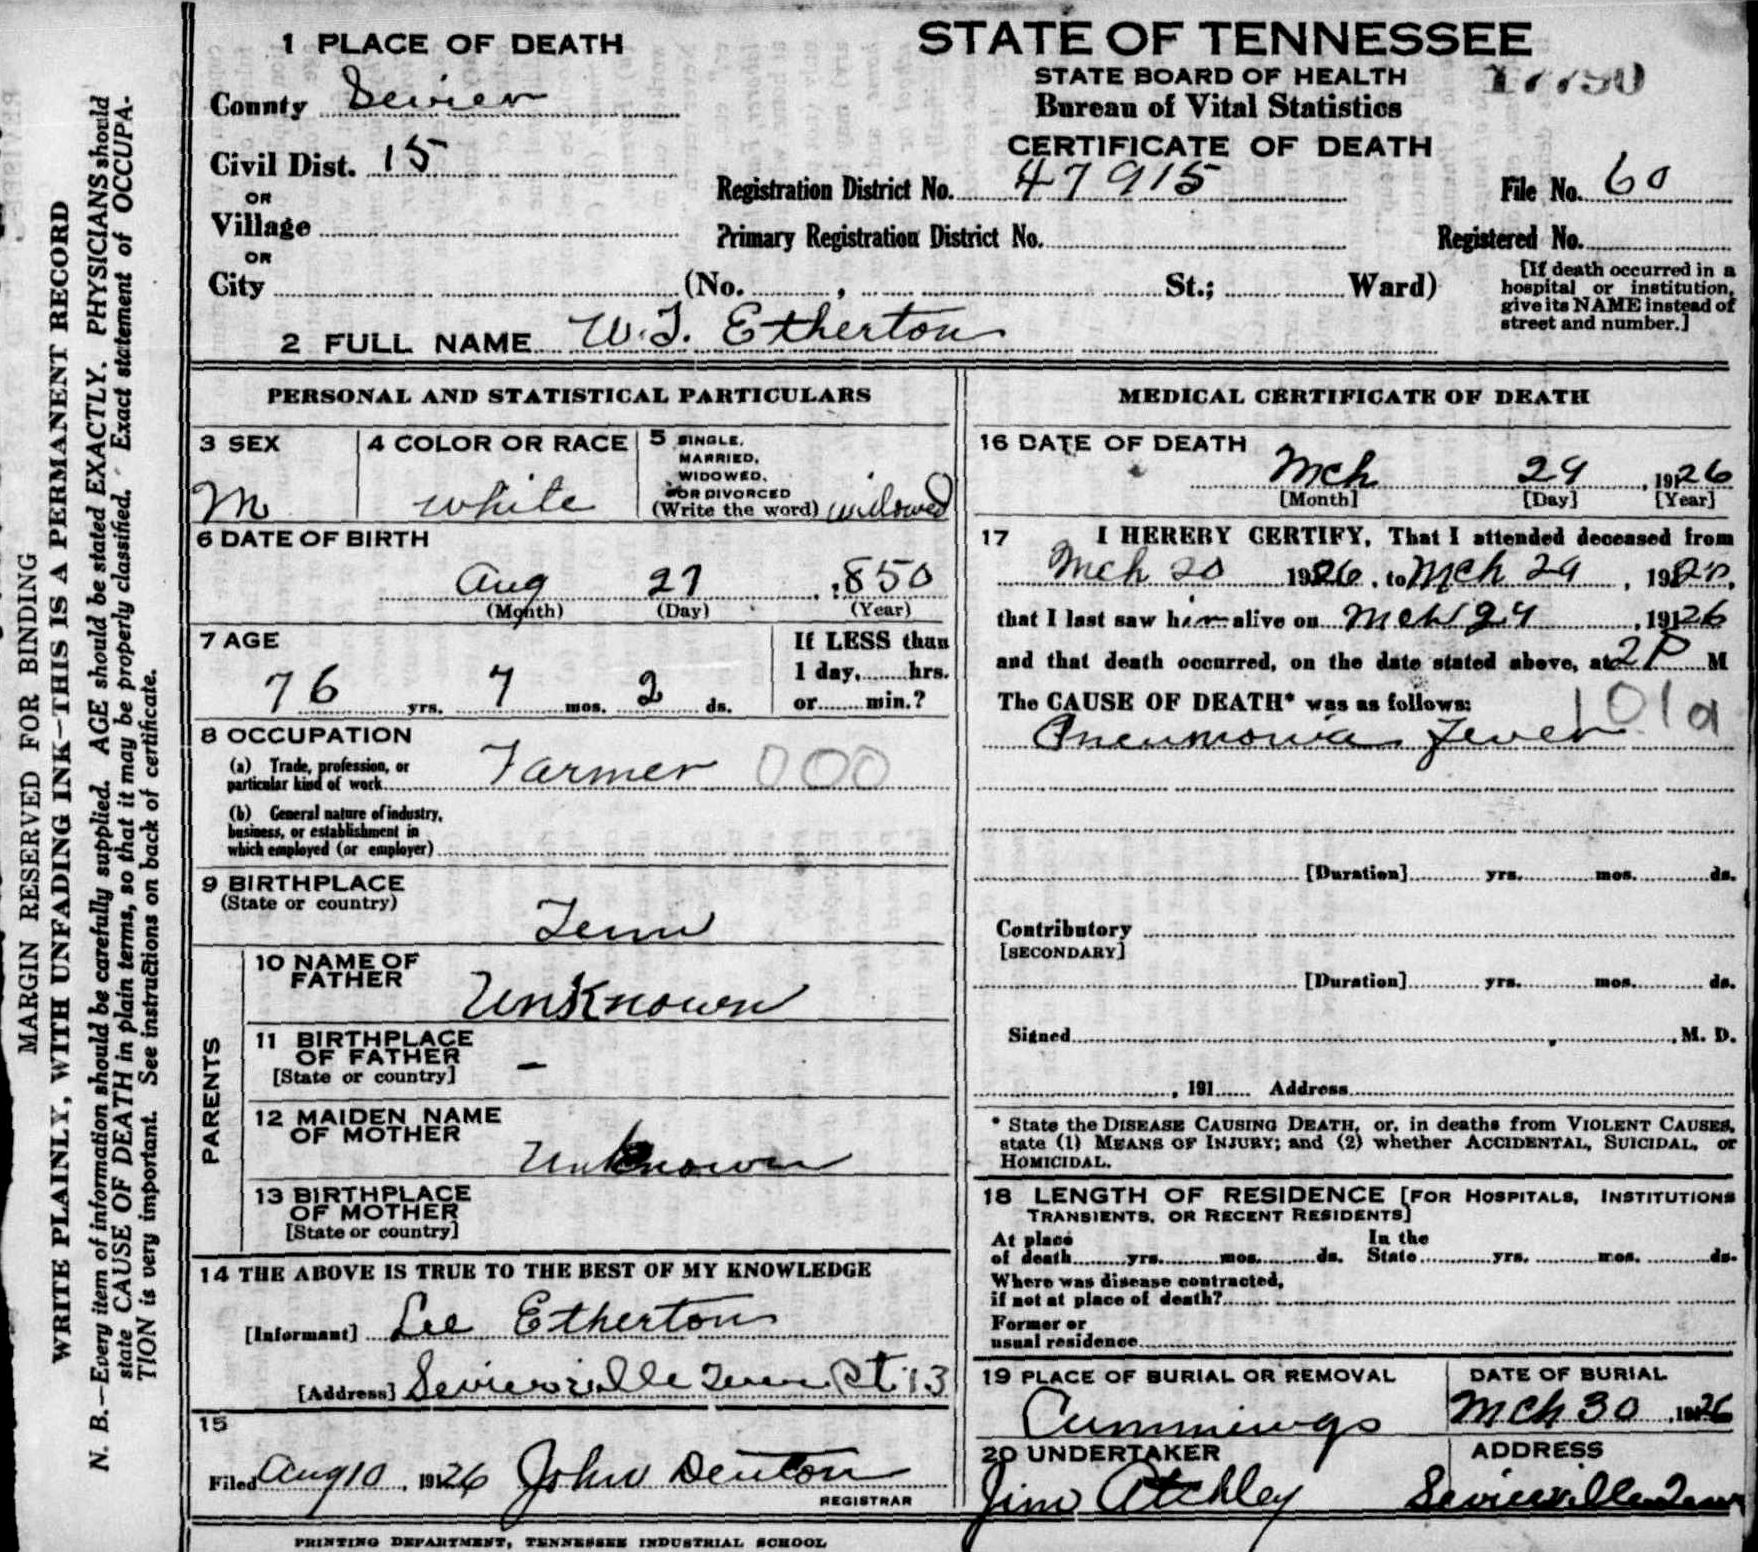 1 PLACE OF DEATH
County Sevier
Civil Dist. 15
OR
Village
OR
City (No. , St.; Ward)
STATE OF TENNESSEE
STATE BOARD OF HEALTH
Bureau of Vital Statistics
CERTIFICATE OF DEATH
Registration District No. 47915
File No. 60
Primary Registration District No.
Registered No.
[If death occurred in a
hospital or institution,
give its NAME instead of
street and number.]
2 FULL NAME W. T. Etherton
PERSONAL AND STATISTICAL PARTICULARS
3 SEX
M
4 COLOR OR RACE
White
5 SINGLE,
MARRIED,
WIDOWED,
OR DIVORCED
(Write the word) widowed
6 DATE OF BIRTH
Aug 27, 1850
(Month) (Day) (Year)
7 AGE
76 yrs. 7 mos. 2 ds.
If LESS than
1 day, hrs.
or min.?
8 OCCUPATION
(a) Trade, profession, or
particular kind of work Farmer 000
(b) General nature of industry,
business, or establishment in
which employed (or employer)
9 BIRTHPLACE
(State or country)
Tenn
PARENTS
10 NAME OF
FATHER
Unknown
11 BIRTHPLACE
OF FATHER
[State or country] -
12 MAIDEN NAME
OF MOTHER
Unknown
13 BIRTHPLACE
OF MOTHER
[State or country]
14 THE ABOVE IS TRUE TO THE BEST OF MY KNOWLEDGE
[Informant] Lee Etherton
[Address] Sevierville Tenn Rt 13
15
Filed Aug 10, 1926 John Denton
REGISTRAR
MEDICAL CERTIFICATE OF DEATH
16 DATE OF DEATH
Mch 29, 1926
[Month] [Day] [Year]
17 I HEREBY CERTIFY, That I attended deceased from
Mch 20 1926, to Mch 29, 19
that I last saw him alive on Mch 24, 1926
and that death occurred, on the date stated above, at 2 P M
The CAUSE OF DEATH* was as follows: 101a
Pneumonia Fever
[Duration] yrs. mos. ds.
Contributory
[SECONDARY]
[Duration] yrs. mos. ds.
Signed , M. D.
, 191 Address
* State the DISEASE CAUSING DEATH, or, in deaths from VIOLENT CAUSES,
state (1) MEANS OF INJURY; and (2) whether ACCIDENTAL, SUICIDAL, or
HOMICIDAL.
18 LENGTH OF RESIDENCE [FOR HOSPITALS, INSTITUTIONS
TRANSIENTS, OR RECENT RESIDENTS]
At place
of death yrs. mos. ds.
In the
State yrs. mos. ds.
Where was disease contracted,
if not at place of death?
Former or
usual residence
19 PLACE OF BURIAL OR REMOVAL
Cummings
DATE OF BURIAL
Mch 30, 1926
20 UNDERTAKER
Jim Atchley
ADDRESS
Sevierville Tenn
PRINTING DEPARTMENT, TENNESSEE INDUSTRIAL SCHOOL
MARGIN RESERVED FOR BINDING
WRITE PLAINLY, WITH UNFADING INK—THIS IS A PERMANENT RECORD
N. B.—Every item of information should be carefully supplied. AGE should be stated EXACTLY. PHYSICIANS should
state CAUSE OF DEATH in plain terms, so that it may be properly classified. Exact statement of OCCUPA-
TION is very important. See instructions on back of certificate.